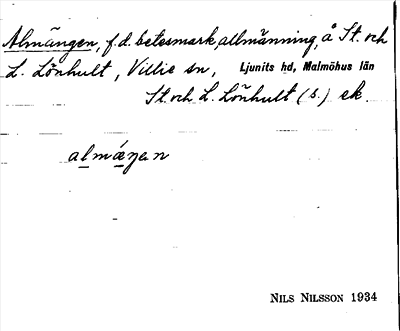 Almängen, f.d. betesmark, allmänning, å St. och
L. Lönhult, Villie sn, Ljunits hd, Malmöhus län
St. och L. Lönhult (s.) ek.
almǽŋen
NILS NILSSON 1934